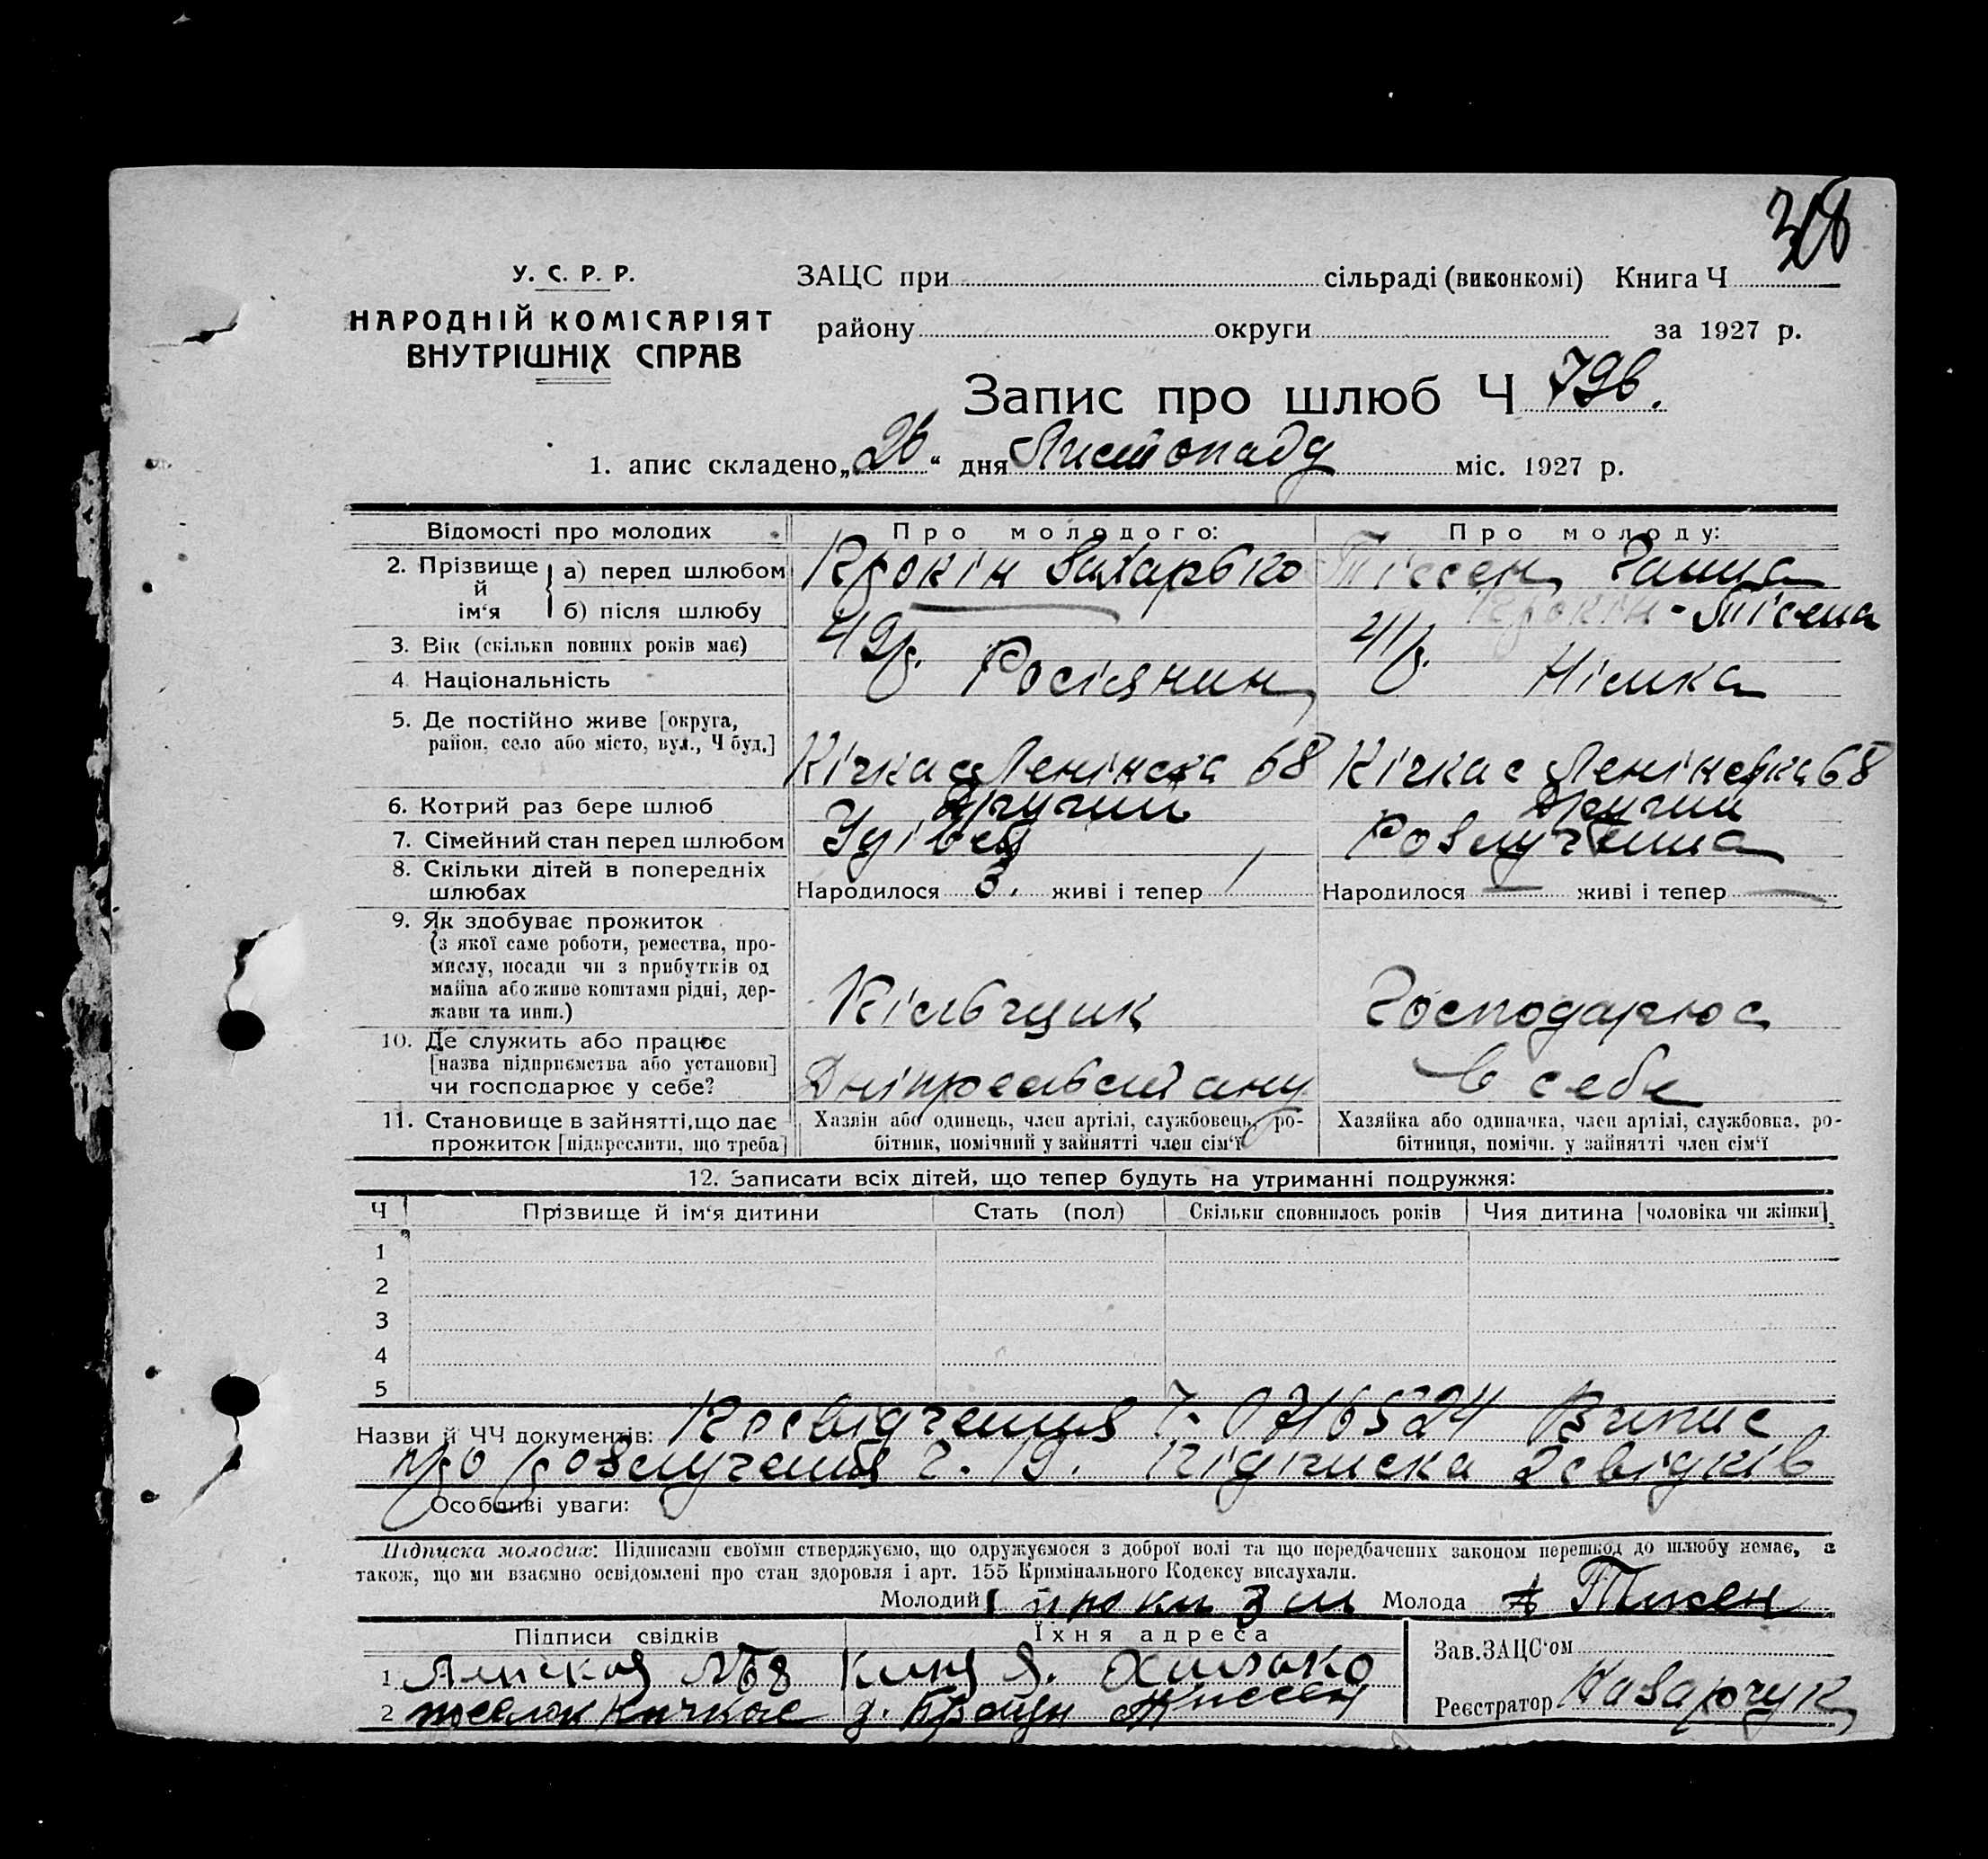 У. С. Р. Р.
НАРОДНІЙ КОМІСАРІЯТ
ВНУТРІШНІХ СПРАВ
ЗАЦС при сільраді (виконкомі) Книга Ч
району округи за 1927 р.
Запис про шлюб Ч 796.
1. апис складено „26“ дня Листопаду міс. 1927 р.
Відомості про молодих Про молодого: Про молоду:
2. Прізвище й ім‘я а) перед шлюбом Крокін Захарько Тіссен Ганна
б) після шлюбу Крокін - Тісена
3. Вік (скільки повних років має) 49р. 41р.
4. Національність Росіянин Німка
5. Де постійно живе [округа,
район, село або місто, вул., Ч буд.] Кічкас Ленінска 68 Кічкас Ленінска 68
6. Котрий раз бере шлюб Другий Другий
7. Сімейний стан перед шлюбом Удівец Розлучена
8. Скільки дітей в попередніх
шлюбах Народилося 3. живі і тепер Народилося — живі і тепер —
9. Як здобуває прожиток
(з якої саме роботи, ремества, про-
мислу, посади чи з прибутків од
майна або живе коштами рідні, дер-
жави та инш.) Кільчщик Господарює
10. Де служить або працює
[назва підприємства або установи]
чи господарює у себе? в себе
11. Становище в зайнятті, що дає
прожиток [підкреслити, що треба]
Хазяїн або одинець, член артілі, службовець, ро-
бітник, помічний у зайнятті член сім‘ї
Хазяйка або одиначка, член артілі, службовка, ро-
бітниця, помічн. у зайнятті член сім‘ї
12. Записати всіх дітей, що тепер будуть на утриманні подружжя:
Ч Прізвище й ім‘я дитини Стать (пол) Скільки сповнилось років Чия дитина [чоловіка чи жінки]
1
2
3
4
5
Назви й ЧЧ документів: Посвідчення Ч. 0716524 Випис
про розлучення Ч. 19. Підписка 2 свідків
Особливі уваги:
Підписка молодих: Підписами своїми стверджуємо, що одружуємося з доброї волі та що передбачених законом перешкод до шлюбу немає, а
також, що ми взаємно освідомлені про стан здоровля і арт. 155 Кримінального Кодексу вислухали.
Молодий Молода А Тисен
Підписи свідків Їхня адреса
1 №68
2 поселок Кичкас
Зав.ЗАЦС‘ом
Реєстратор Назарчук